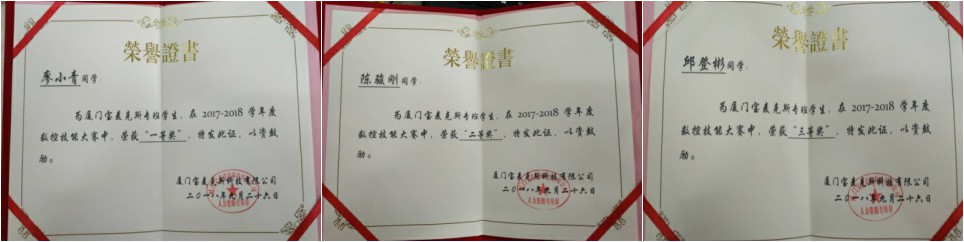 榮譽證書
廖小青同学：
为厦门宝麦克斯专班学生，在 2017-2018 学年度
数控技能大赛中，荣获“一等奖”，特发此证，以资鼓
励。
厦门宝麦克斯科技有限公司
二〇一八年九月二十六日
榮譽證書
陈骏刚同学：
为厦门宝麦克斯专班学生，在 2017-2018 学年度
数控技能大赛中，荣获“二等奖”，特发此证，以资鼓
励。
厦门宝麦克斯科技有限公司
二〇一八年九月二十六日
人力资源专用章
榮譽證書
邱登彬同学：
为厦门宝麦克斯专班学生，在 2017-2018 学年度
数控技能大赛中，荣获“三等奖”，特发此证，以资鼓
励。
厦门宝麦克斯科技有限公司
二〇一八年九月二十六日